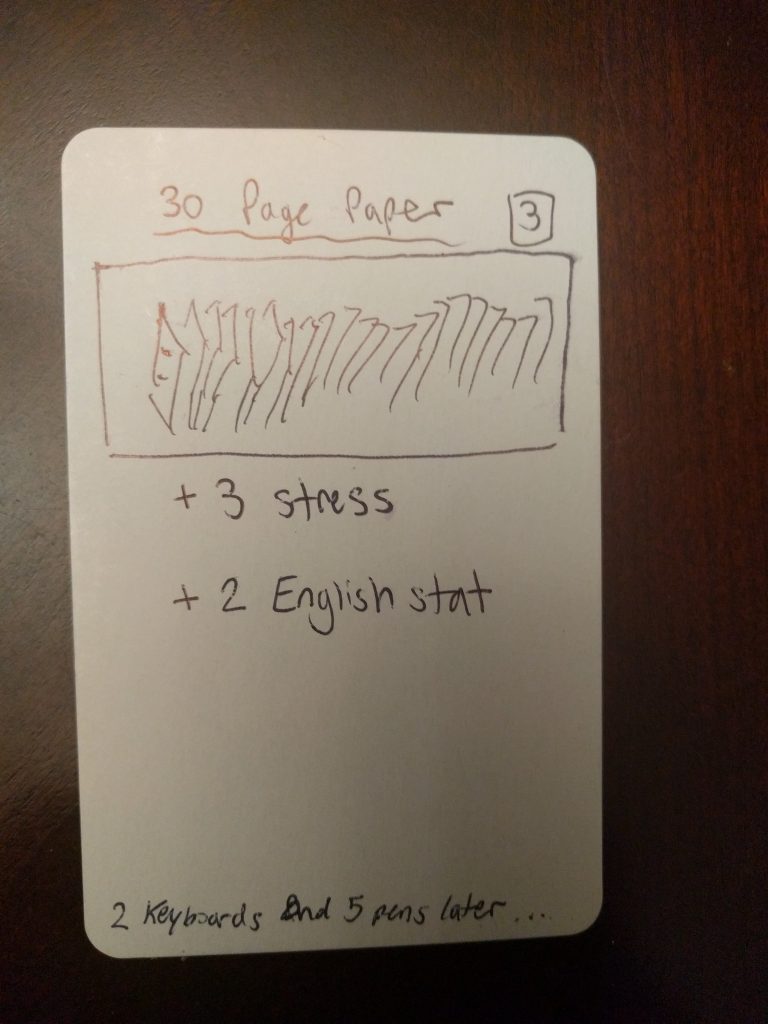 30 Page Paper 3
+ 3 stress
+ 2 English stat
2 Keyboards And 5 pens later...